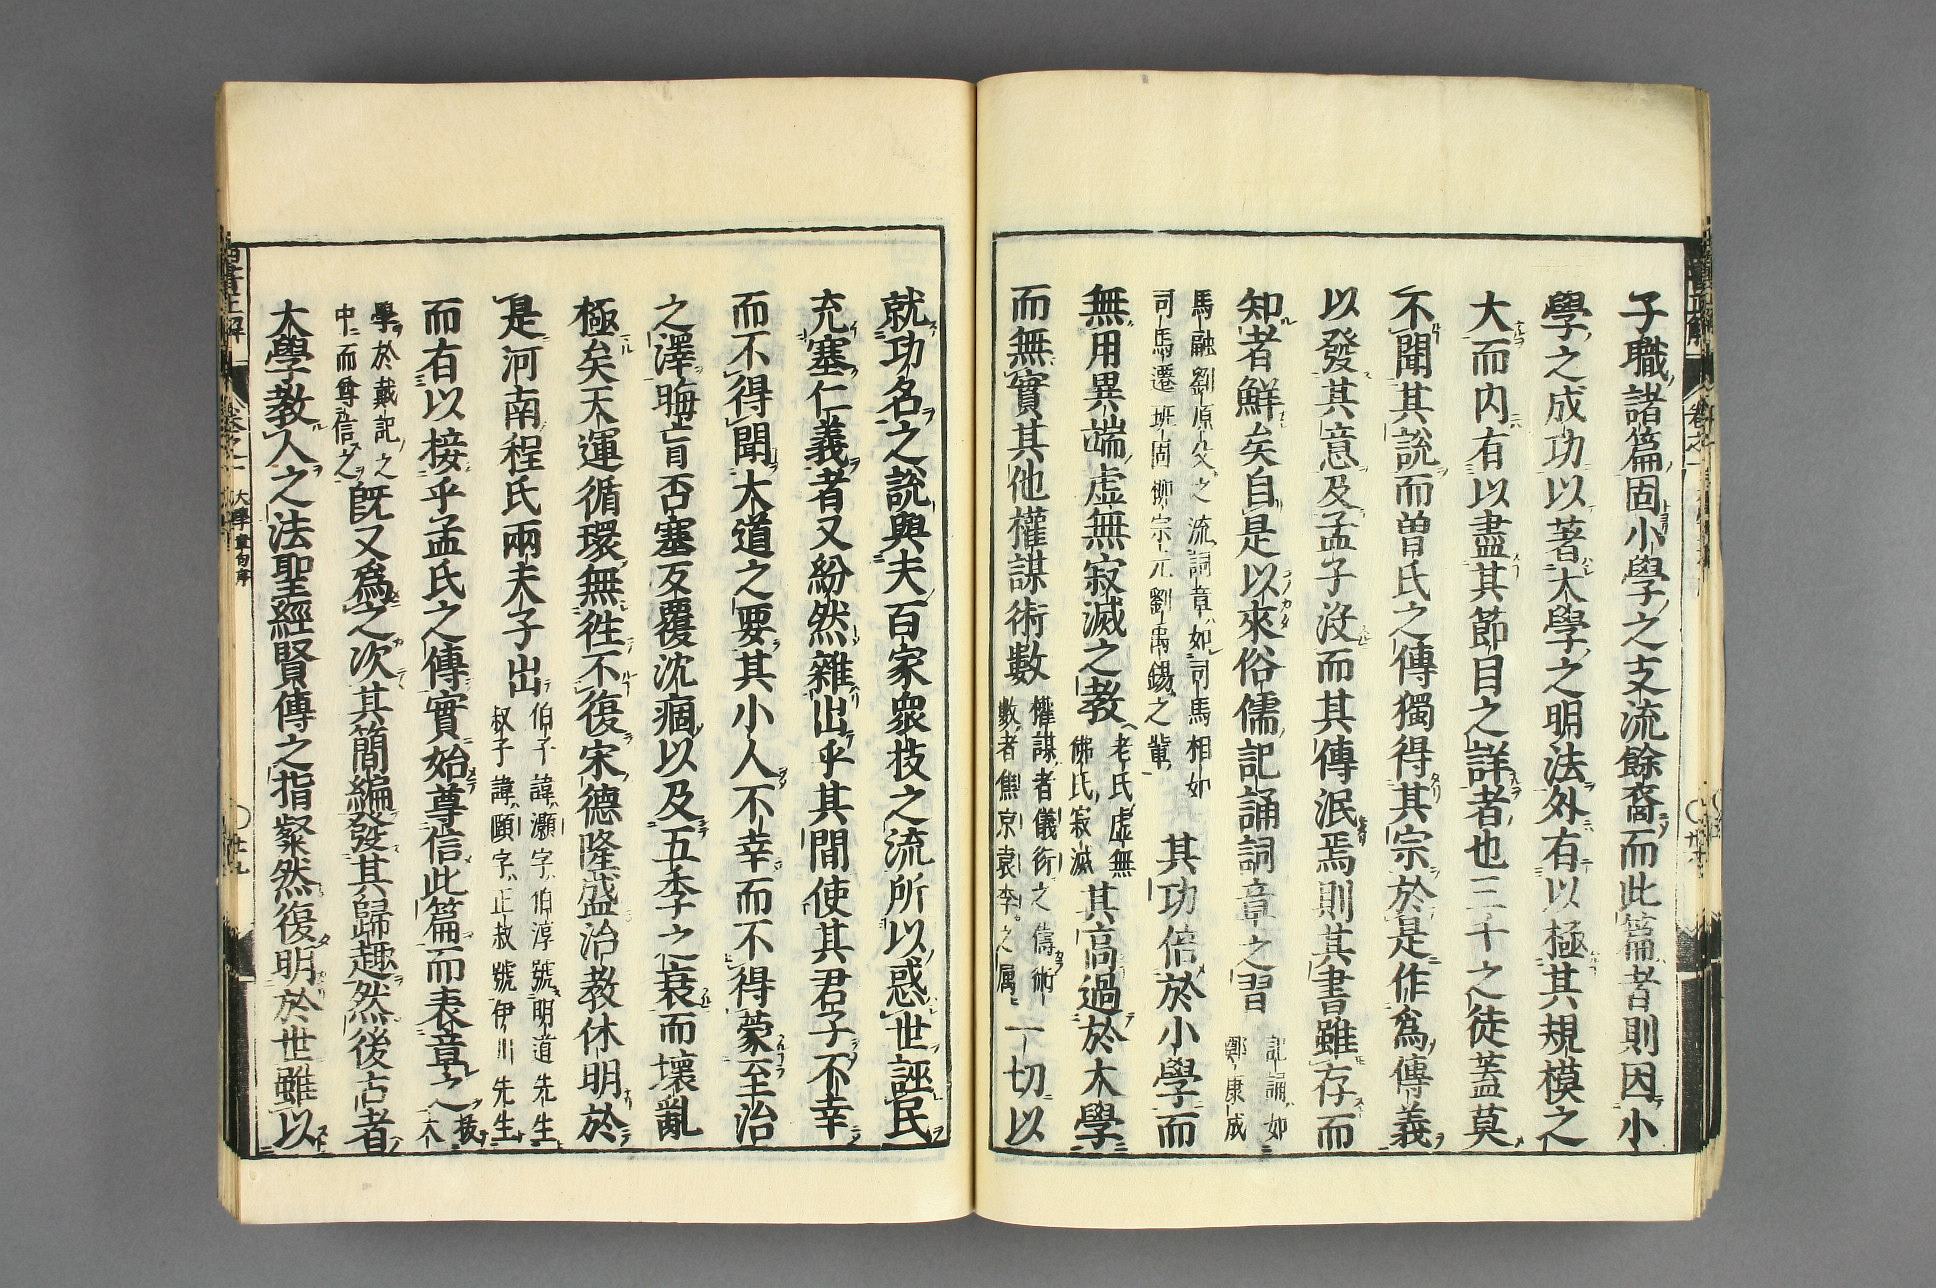 子職諸篇固小學之支流餘裔而此篇者則因小
學之成功以著大學之明法外有以極其規模之
大而內有以盡其節目之詳者也三千之徒蓋莫
不聞其説而曽氏之傳獨得其宗於是作爲傳義
以發其意及孟子沒而其傳泯焉則其書雖存而
知者鮮矣自是以來俗儒記誦詞章之習
記誦如
鄭康成
馬融劉原父之流詞章如司馬相如
司馬遷班固柳宗元劉禹錫之輩
其功倍於小學而
無用異端虛無寂滅之教
老氏虛無
佛氏寂滅
其高過於大學
而無實其他權謀術數
權謀者儀衍之儔術
數者焦京袁李之属
一切以
就功名之説與夫百家衆技之流所以惑世誣民
充塞仁義者又紛然雜出乎其間使其君子不幸
而不得聞大道之要其小人不幸而不得蒙至治
之澤晦盲否塞反覆沈痼以及五季之衰而壞亂
極矣天運循環無徃不復宋德隆盛治教休明於
是河南程氏兩夫子出
伯子諱灝字伯淳號明道先生
叔子諱頤字正叔號伊川先生
而有以接乎孟氏之傳實始尊信此篇而表章之
拔大
學於戴記之
中而尊信之
旣又爲之次其簡編發其歸趣然後古者
大學教人之法聖經賢傳之指粲然復明於世雖以
四書正解
卷之一
大學章句序
廿九